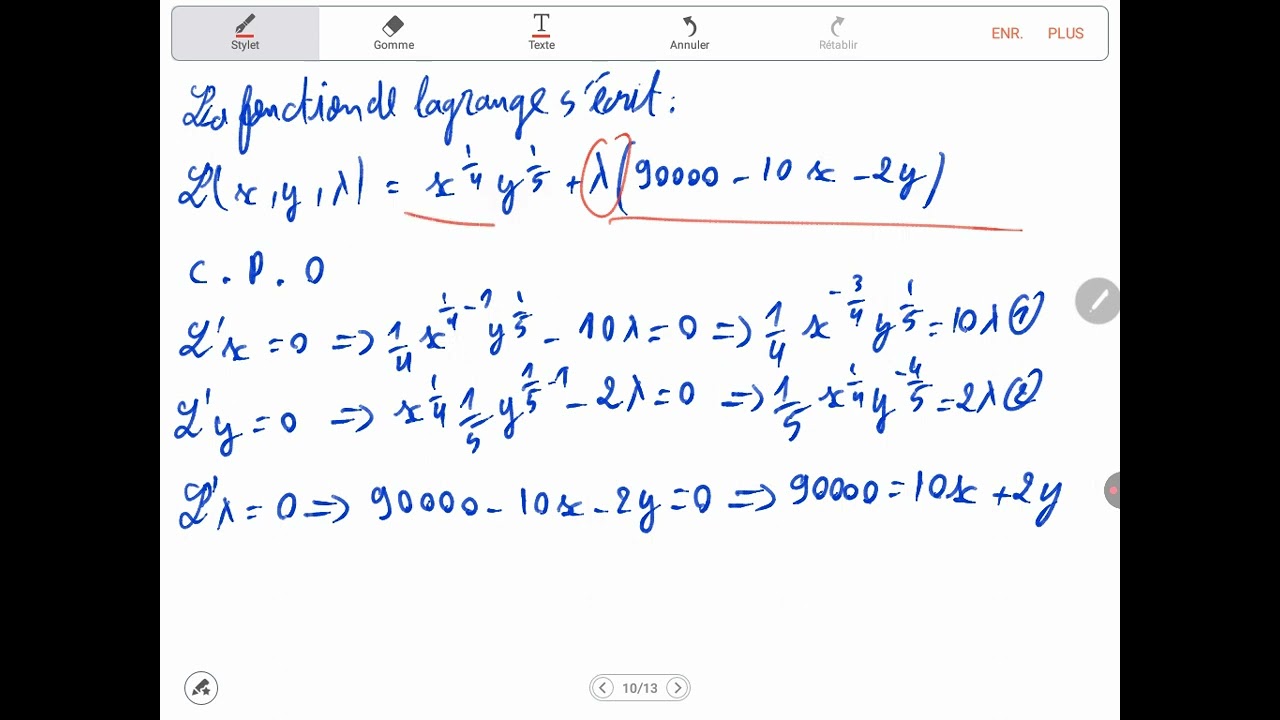 Stylet Gomme Texte Annuler Rétablir ENR. PLUS
La fonction de lagrange s'écrit :
L(x, y, λ) = x^{1/4} y^{1/5} + λ(90000 - 10x - 2y)
C.P.O
L'x = 0 => 1/4 x^{1/4 - 1} y^{1/5} - 10λ = 0 => 1/4 x^{-3/4} y^{1/5} = 10λ ①
L'y = 0 => x^{1/4} 1/5 y^{1/5 - 1} - 2λ = 0 => 1/5 x^{1/4} y^{-4/5} = 2λ ②
L'λ = 0 => 90000 - 10x - 2y = 0 => 90000 = 10x + 2y
10/13